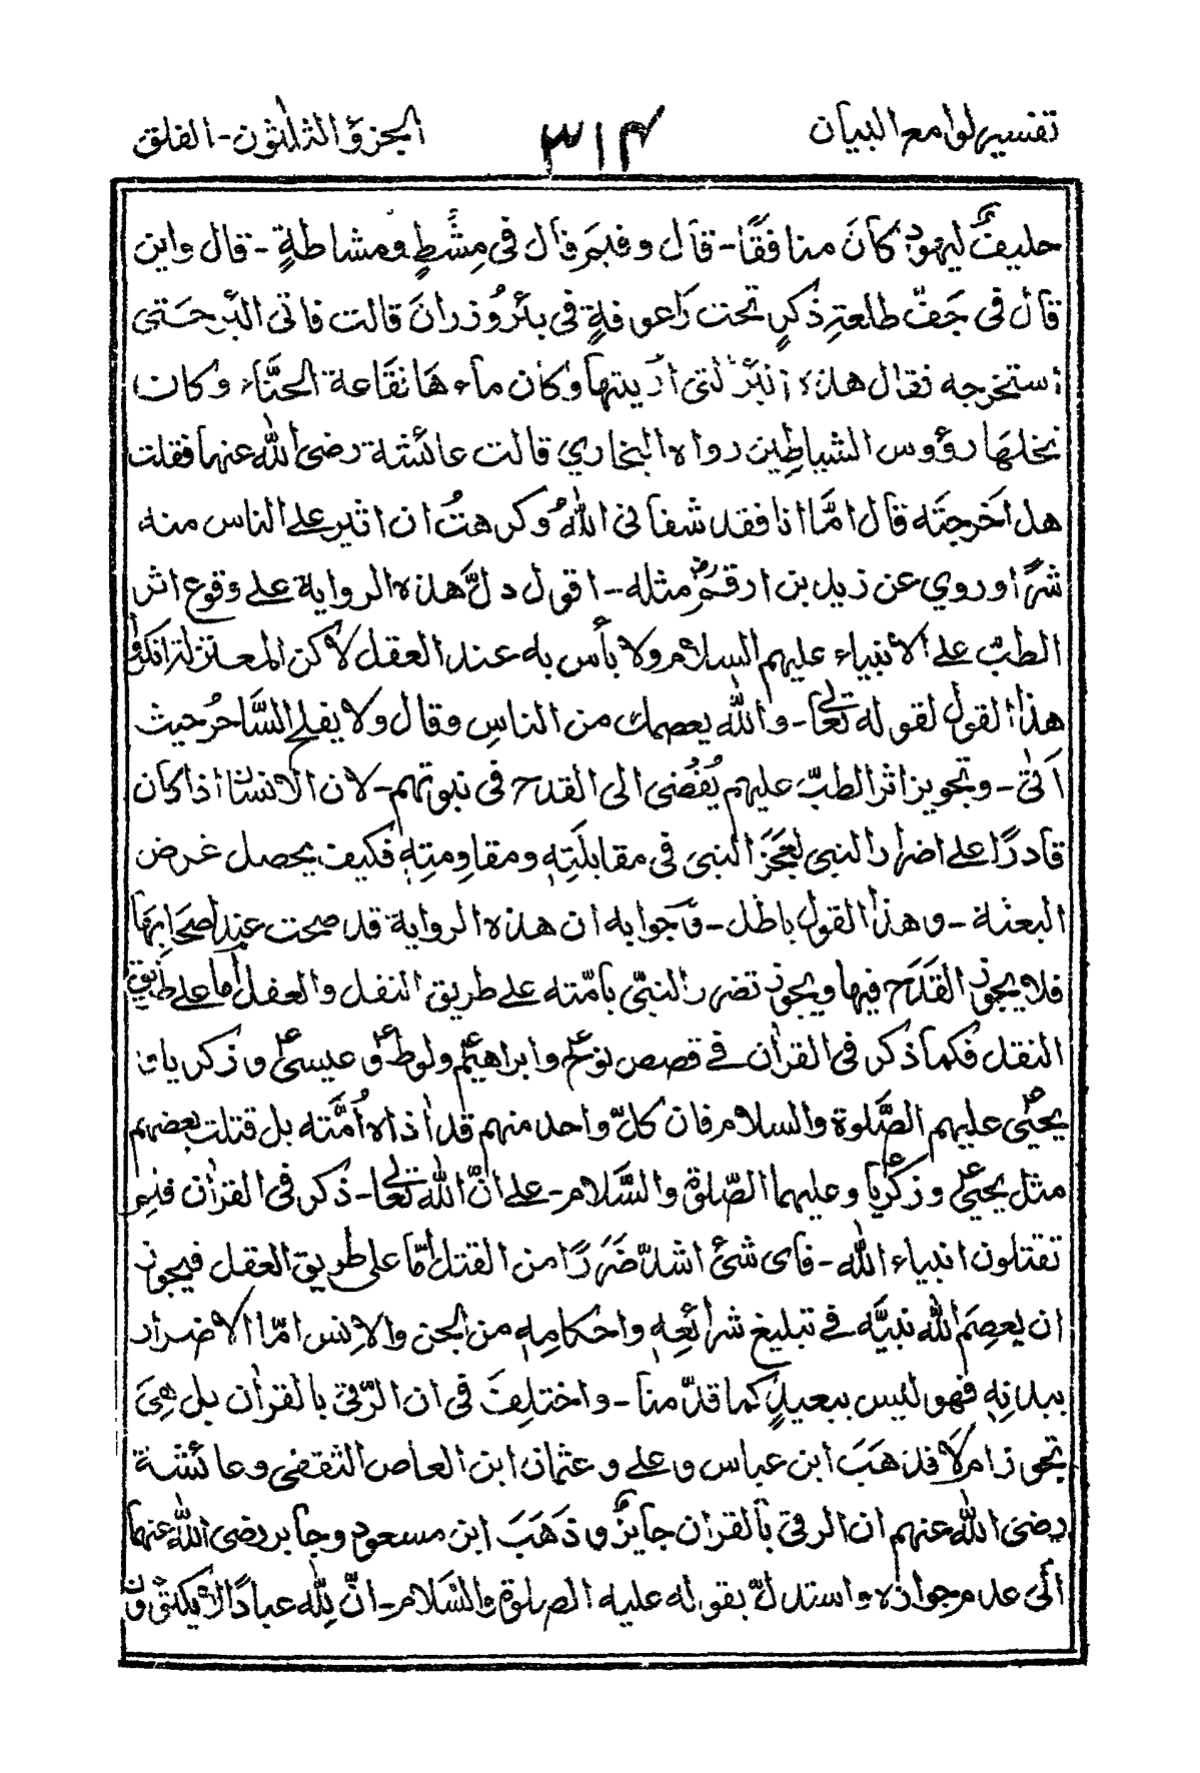 تفسير لوامع البيان ۳۱۴ الجزؤ الثلثون - الفلق
حليفٌ ليهود كانَ منافقًا - قال وفيمَ قال فى مِشطٍ ومشاطةٍ - قال واين
قال فى جَفّ طلعةِ ذكرٍ تحت رَاعوفةٍ فى بئر ذروانَ قالت فاتى البئر حتى
استخرجه فقال هذه البئر التى اُريتها وكان ماءها نقَاعة الحنّاء وكان
نخلهَا رؤوس الشياطِين رواه البخاري قالت عائشة رضى الله عنها فقلت
هل اَخرجتَه قال امَّا انا فقد شفانى اللهُ وكرهتُ ان اثير على الناس منه
شرًا وروي عن زيد بن ارقمؓ مثله - اقول دلَّ هذه الرواية على وقوع اثر
الطبّ على الأنبياء عليهم السلام ولا بأس به عند العقل لاكن المعتزلة انكروا
هذا القول لقوله تعالى - والله يعصمك من الناسِ وقال ولا يفلح السَّاحرُ حيث
اَتٰى - وتجويز اثر الطبّ عليهم يُفُضى الى القدح فى نبوتهم - لان الانسان اذا كان
قادرًا على اضرار النبى لعَجَزَ النبى فى مقابلَتِهٖ ومقاومتِهٖ فكيف يحصل غرض
البعثة - وهذا القول باطل - وجوابه ان هذه الرواية قد صحت عند اصحَابِهَا
فلا يجوز القَدَح فيها ويجوز تضرر النبىّ بامّته على طريق النقل والعقل اما على طريق
النقل فكما ذكر فى القراٰن فى قصص نوحؑ وابراهيمؑ ولوطؑ و عيسىؑ و زكريا و
يحيىؑ عليهم الصَّلوة والسلام فان كلّ واحد منهم قد اٰذاه اُمَّته بل قتلت بعضهم
مثل يحيىؑ و زكرياؑ وعليهما الصّلوة والسَّلام - على انّ الله تعالى - ذكر فى القراٰن فلِمَ
تقتلون انبياء الله - فاى شئ اشدّ ضَرَرًا من القتل امّا على طريق العقل فيجوز
ان يعصِمَ الله نبيَّه فى تبليغ شرائعِهٖ واحكامِهٖ من الجن والاِنس امّا الاضرار
ببدنِهٖ فهو ليس ببعيدٍ كما قدّمنا - واختلِفَ فى ان الرّقى بالقراٰن بل هِىَ
تجوز ام لا فذهَبَ ابن عباس و على و عثمان ابن العاص الثقفى وعائشة
رضى الله عنهم ان الرقى بالقراٰن جايزٌ و ذهَبَ ابن مسعود وجابر رضى الله عنهما
الى عدم جوازه واستدلّ بقوله عليه الصلوة والسّلام - انّ لِله عبادًا لا يكتوون